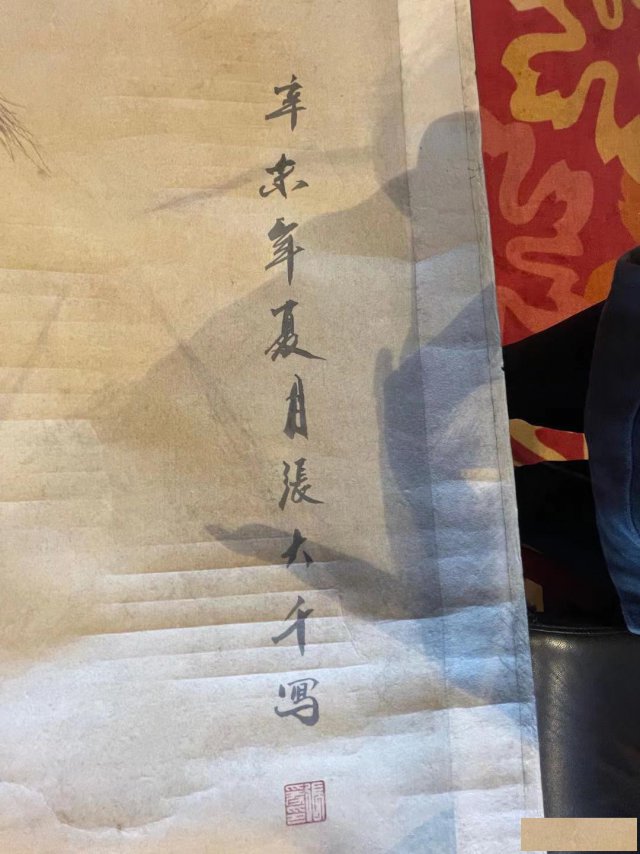 辛未年夏月張大千寫